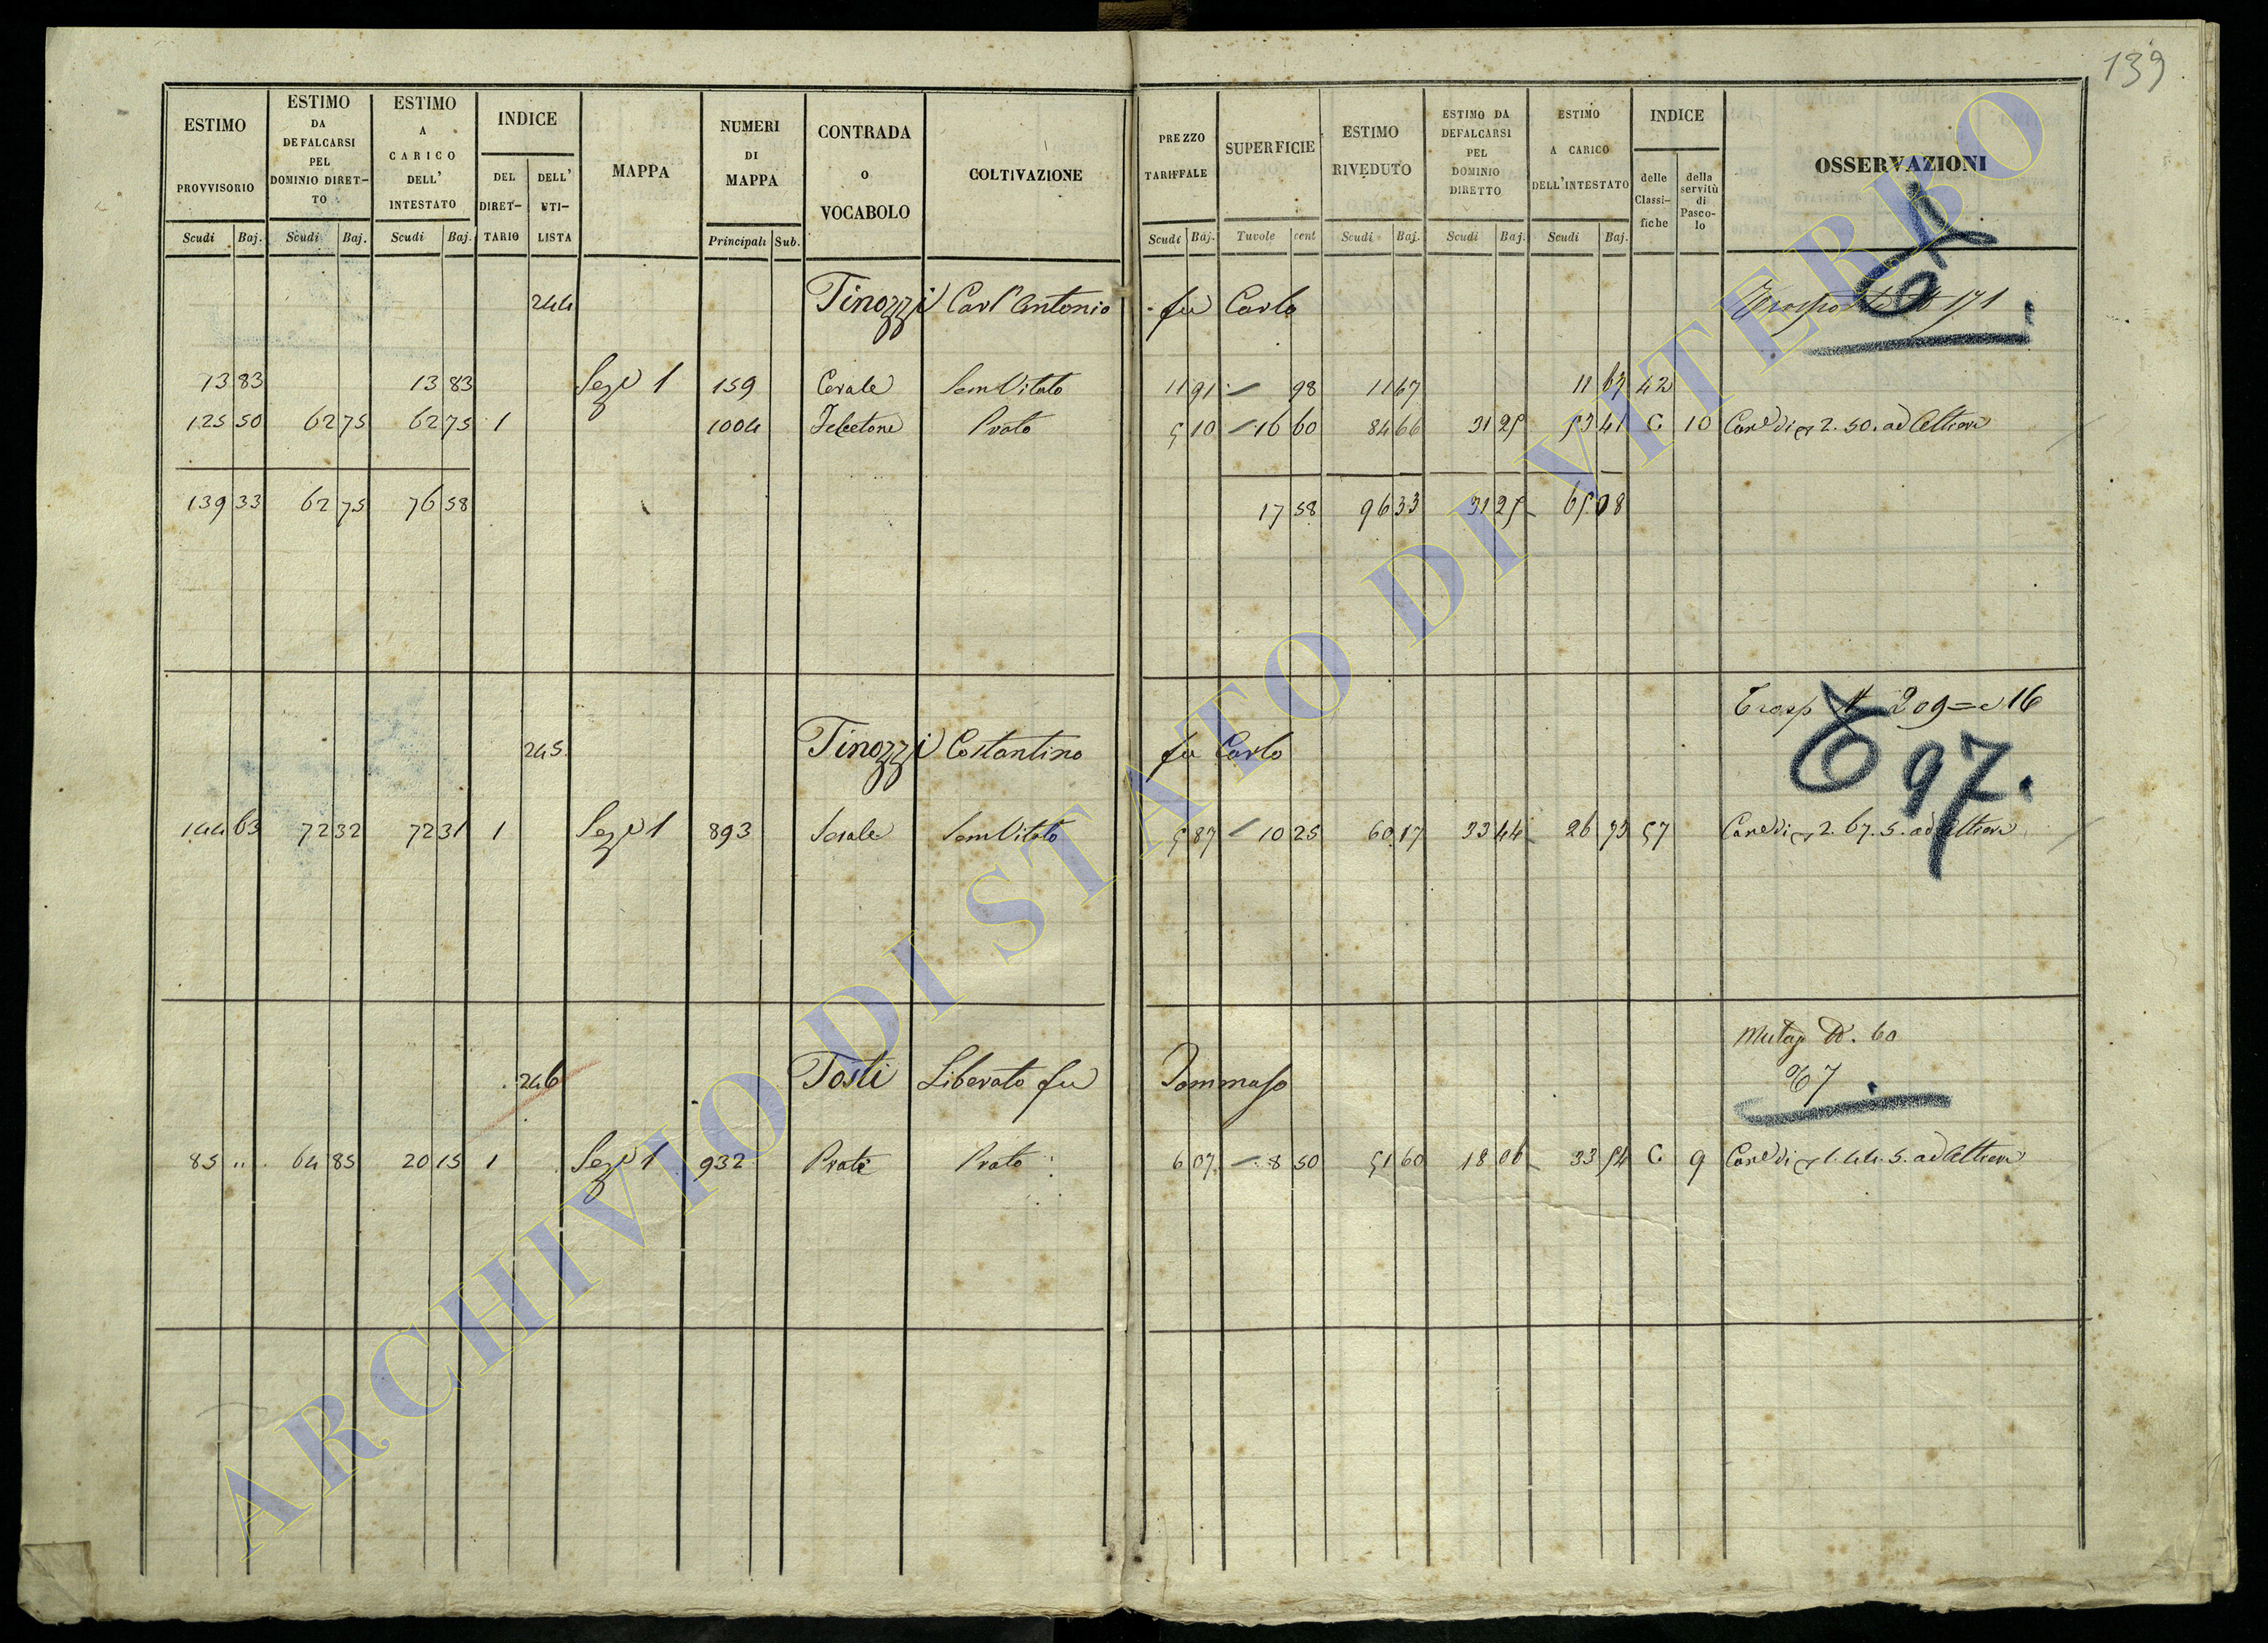 139
ESTIMO PROVVISORIO Scudi Baj.
ESTIMO DA DEFALCARSI PEL DOMINIO DIRET- TO Scudi Baj.
ESTIMO A CARICO DELL' INTESTATO Scudi Baj.
INDICE DEL DIRET- TARIO DELL' UTI- LISTA
MAPPA
NUMERI DI MAPPA Principali Sub.
CONTRADA O VOCABOLO
COLTIVAZIONE
PREZZO TARIFFALE Scudi Baj.
SUPERFICIE Tavole cent
ESTIMO RIVEDUTO Scudi Baj.
ESTIMO DA DEFALCARSI PEL DOMINIO DIRETTO Scudi Baj.
ESTIMO A CARICO DELL'INTESTATO Scudi Baj.
INDICE delle Classi- fiche della servitù di Pasco- lo
OSSERVAZIONI
244 Tinozzi Carl'Antonio fu Carlo 171
13 83 13 83 Sez 1 159 Cerale SemVitato 11 91 98 11 67 11 67 42
125 50 62 75 62 75 1 1004 Prato 5 10 16 60 84 66 31 25 53 41 C 10 2.50. ad Altieri
139 33 62 75 76 58 17 58 96 33 31 25 65 08
Trasp 209 = 16
245 Tinozzi Costantino fu Carlo 97.
144 63 72 32 72 31 1 Sez 1 893 Serale SemVitato 5 87 10 25 60 17 33 44 26 73 57 2.67.5. ad Altieri
60
246 Tosti Liberato fu Tommaso 67
85 " 64 85 20 15 1 Sez 1 932 Prato 6 07 8 50 51 60 18 06 33 54 C 9 1.44.5. ad Altieri
ARCHIVIO DI STATO DI VITERBO